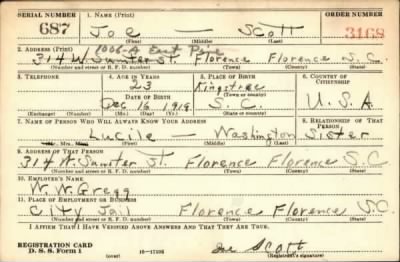 SERIAL NUMBER 1. NAME (Print) ORDER NUMBER
687 Joe — Scott 3168
(First) (Middle) (Last)
2. ADDRESS (Print) 1006-A East Pine
314 W. Sumter St. Florence Florence S.C.
(Number and street or R. F. D. number) (Town) (County) (State)
3. TELEPHONE 4. AGE IN YEARS 5. PLACE OF BIRTH 6. COUNTRY OF CITIZENSHIP
23 Kingstree
(Town or county)
DATE OF BIRTH
Dec 16 1919 S.C. U.S.A
(Exchange) (Number) (Mo.) (Day) (Yr.) (State or country)
7. NAME OF PERSON WHO WILL ALWAYS KNOW YOUR ADDRESS 8. RELATIONSHIP OF THAT PERSON
Lucile — Washington Sister
(First) (Middle) (Last)
9. ADDRESS OF THAT PERSON
314 W. Sumter St. Florence Florence S.C
(Number and street or R. F. D. number) (Town) (County) (State)
10. EMPLOYER'S NAME
W. W. Gregg
11. PLACE OF EMPLOYMENT OR BUSINESS
City Jail Florence Florence S.C.
(Number and street or R. F. D. number) (Town) (County) (State)
I AFFIRM THAT I HAVE VERIFIED ABOVE ANSWERS AND THAT THEY ARE TRUE.
REGISTRATION CARD
D. S. S. Form 1 (over) Joe Scott
(Registrant's signature)